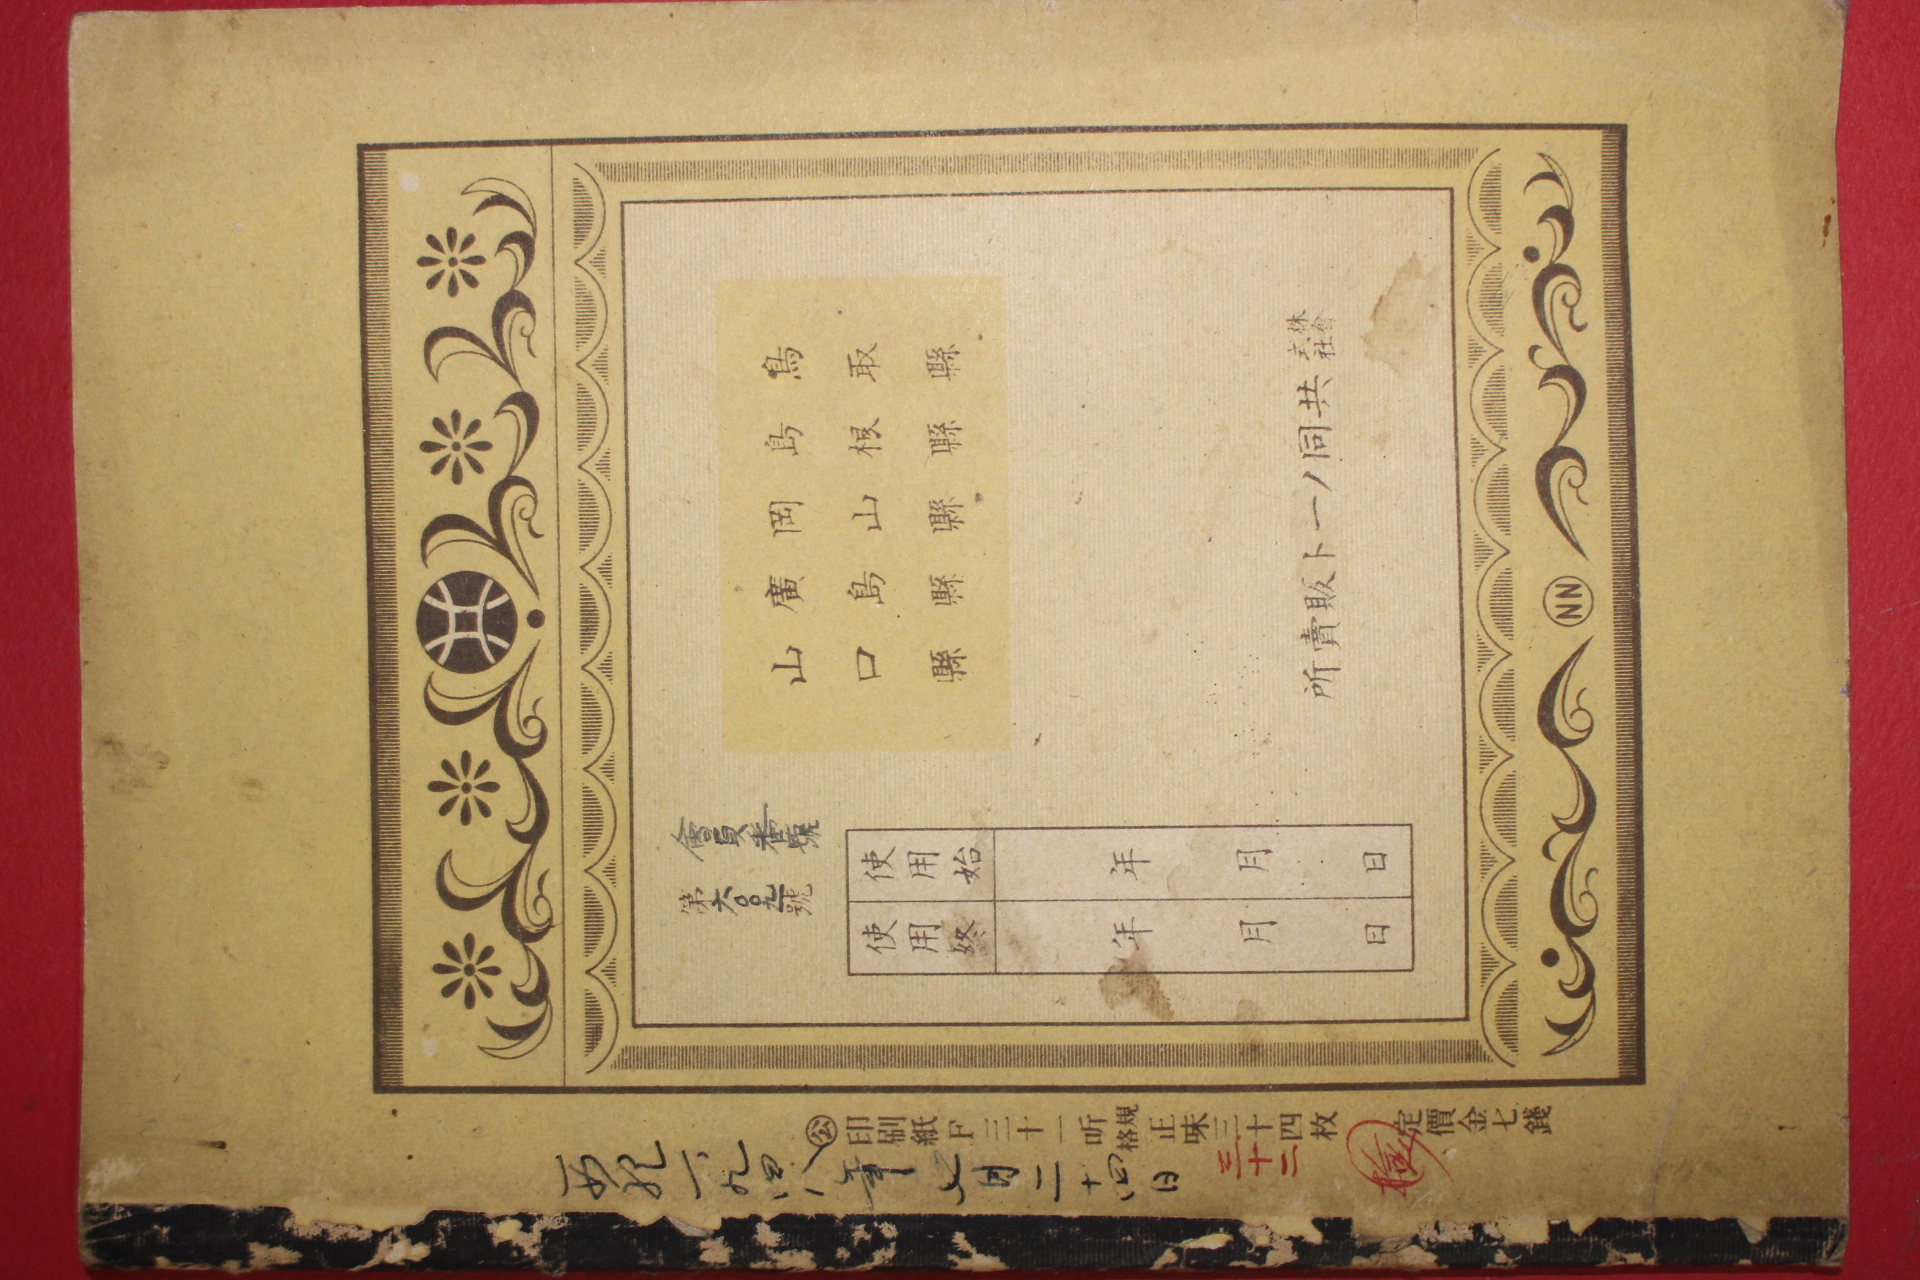 鳥取縣
島根縣
岡山縣
廣島縣
山口縣
株式
會社
共同ノート販賣所
會員番號
第六〇〇九號
使用始 年 月 日
使用終 年 月 日
NN
公 印刷紙F三十一听 規格 正味三十四枚 定價金七錢
三十二
西紀一九四八年七月二十四日